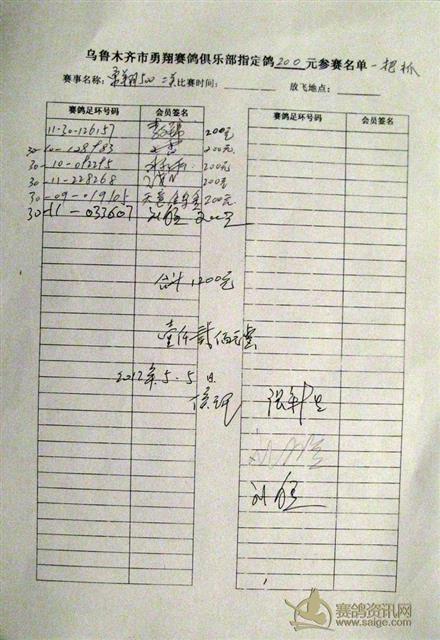 乌鲁木齐市勇翔赛鸽俱乐部指定鸽200元参赛名单一把抓
赛事名称：勇翔500二关比赛时间：放飞地点：
赛鸽足环号码 会员签名 赛鸽足环号码 会员签名
11-30-126157 200元
200元
30-10-092295 200元
30-11-228268 200元
30-09-019105 200元
30-11-033607 刘胜
合计1200元
壹仟贰佰元整
2012年5.5日
刘胜
赛鸽资讯网
www.saige.com